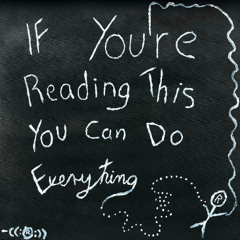 IF You're
Reading This
You Can Do
Everything
®
-((:®:))